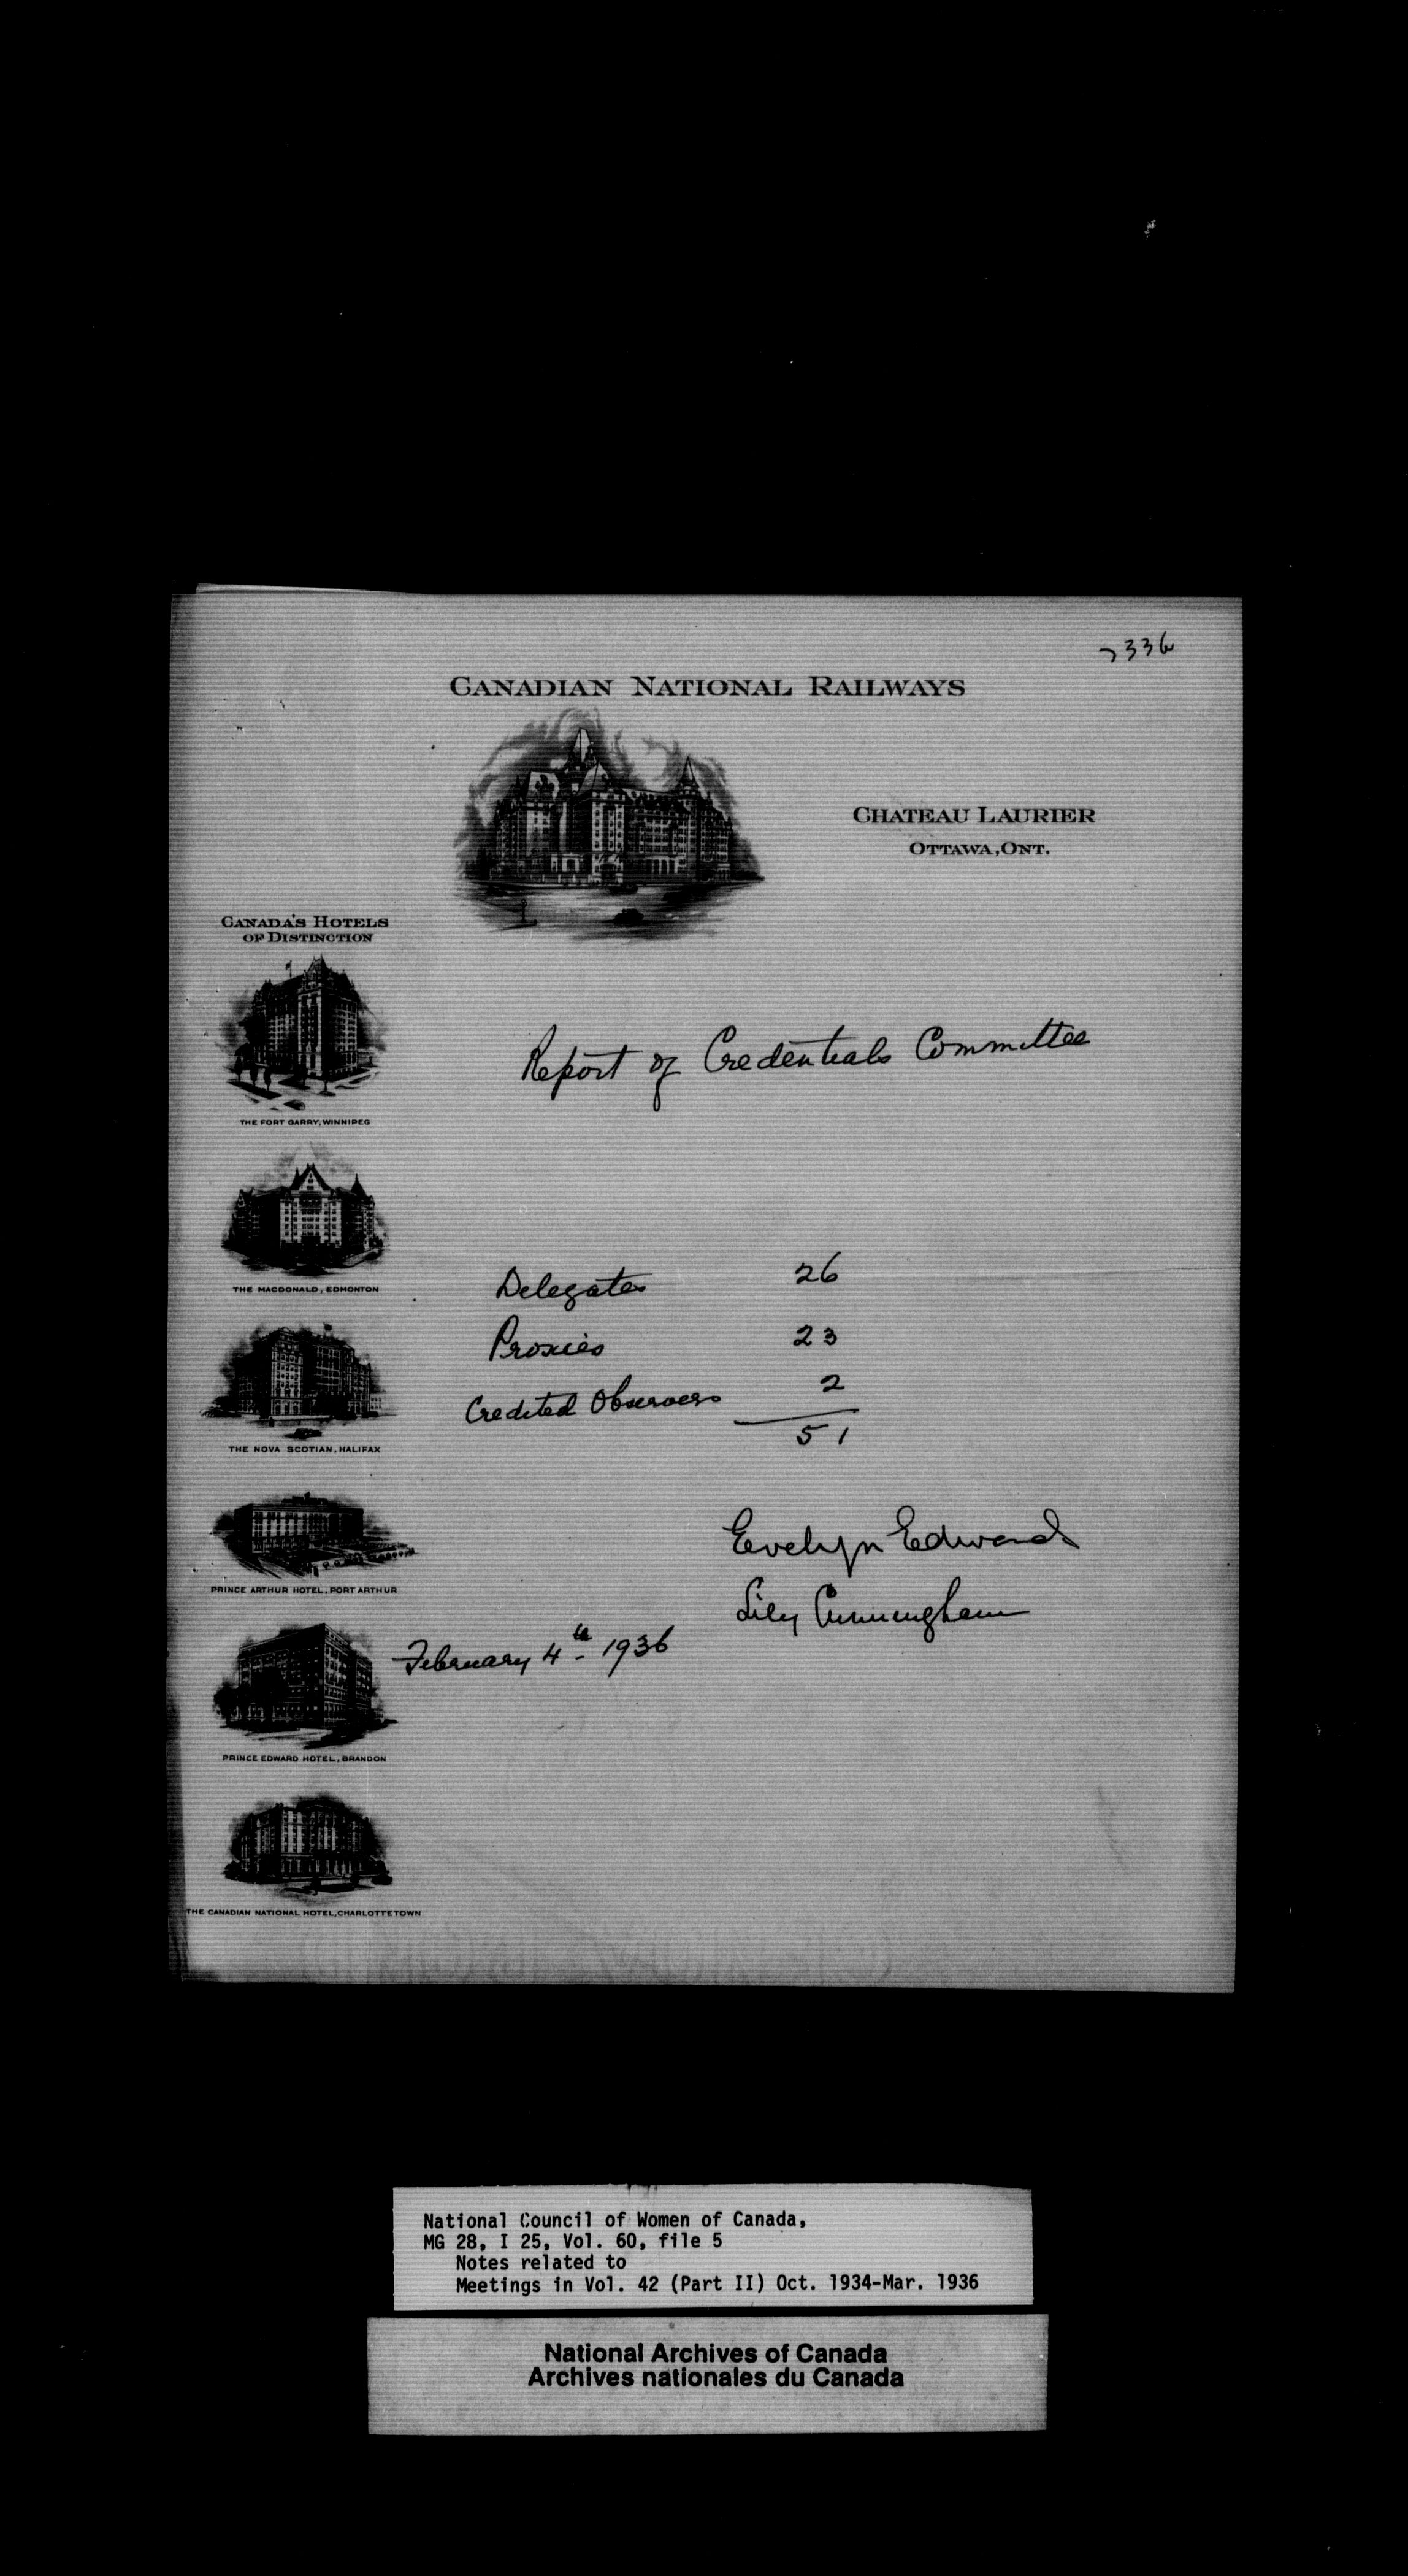 7336
CANADIAN NATIONAL RAILWAYS
CHATEAU LAURIER
OTTAWA, ONT.
CANADA'S HOTELS
OF DISTINCTION
THE FORT GARRY, WINNIPEG
THE MACDONALD, EDMONTON
THE NOVA SCOTIAN, HALIFAX
PRINCE ARTHUR HOTEL, PORT ARTHUR
PRINCE EDWARD HOTEL, BRANDON
THE CANADIAN NATIONAL HOTEL, CHARLOTTETOWN
Report of Credentials Committee
Delegates 26
Proxies 23
Credited Observers 2
51
Evelyn Edwards
Lily Cunningham
February 4th 1936
National Council of Women of Canada,
MG 28, I 25, Vol. 60, file 5
Notes related to
Meetings in Vol. 42 (Part II) Oct. 1934-Mar. 1936
National Archives of Canada
Archives nationales du Canada